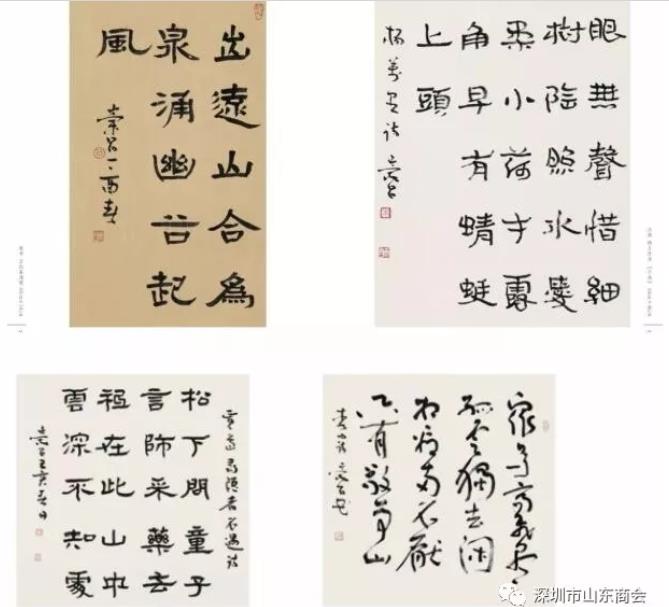 出遠山合爲
泉涌幽谷起
風
眼無聲惜細
樹陰照水愛
柔小荷才露
角早有蜻蜓
上頭
楊萬里詩
賈島尋隱者不遇詩
松下問童子
言師采藥去
祗在此山中
雲深不知處
眾鳥高飛盡
孤雲獨去閑
相看兩不厭
只有敬亭山
深圳市山东商会